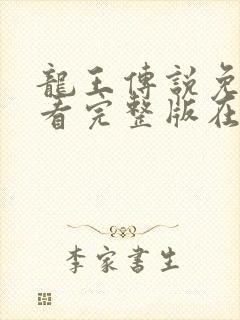 龍王傳說免
看完整版在
李家書生